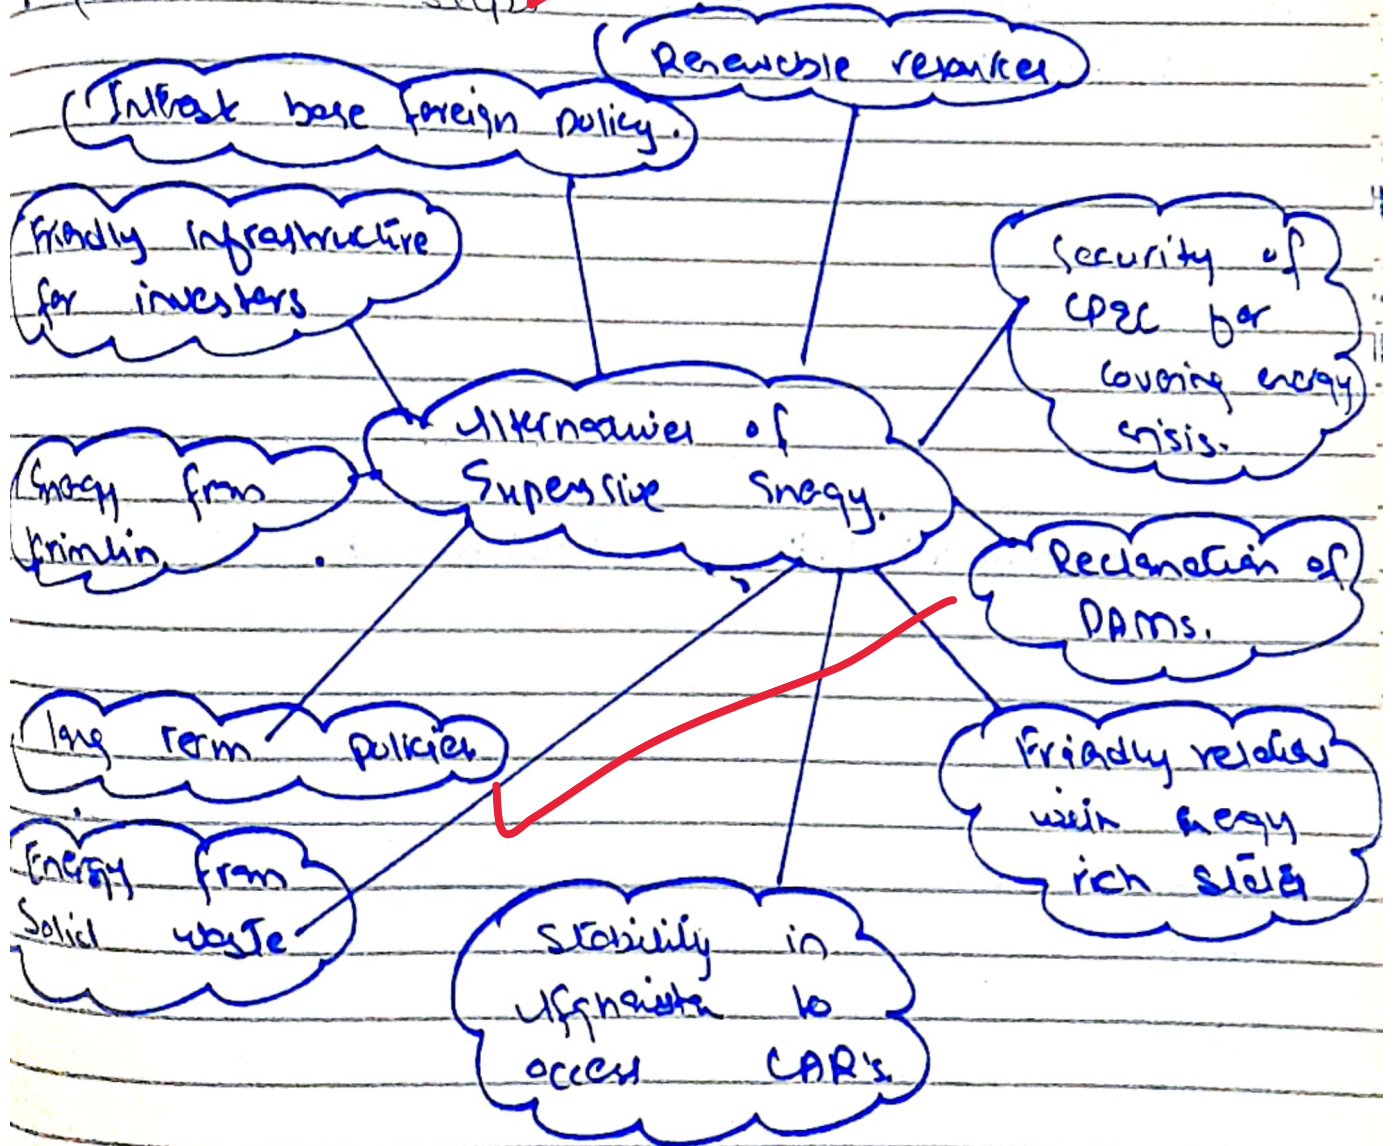 Renewable resources
Intrest base foreign policy.
Friendly infrastructure
for investors
Security of
CPEC for
covering energy
crisis.
Alternatives of
Expensive Energy.
Energy from
krimlin
Reclamation of
DAMs.
long Term policies
Friendly relations
with energy
rich states
Energy from
Solid waste
Stability in
Afghanistan to
access CAR's.